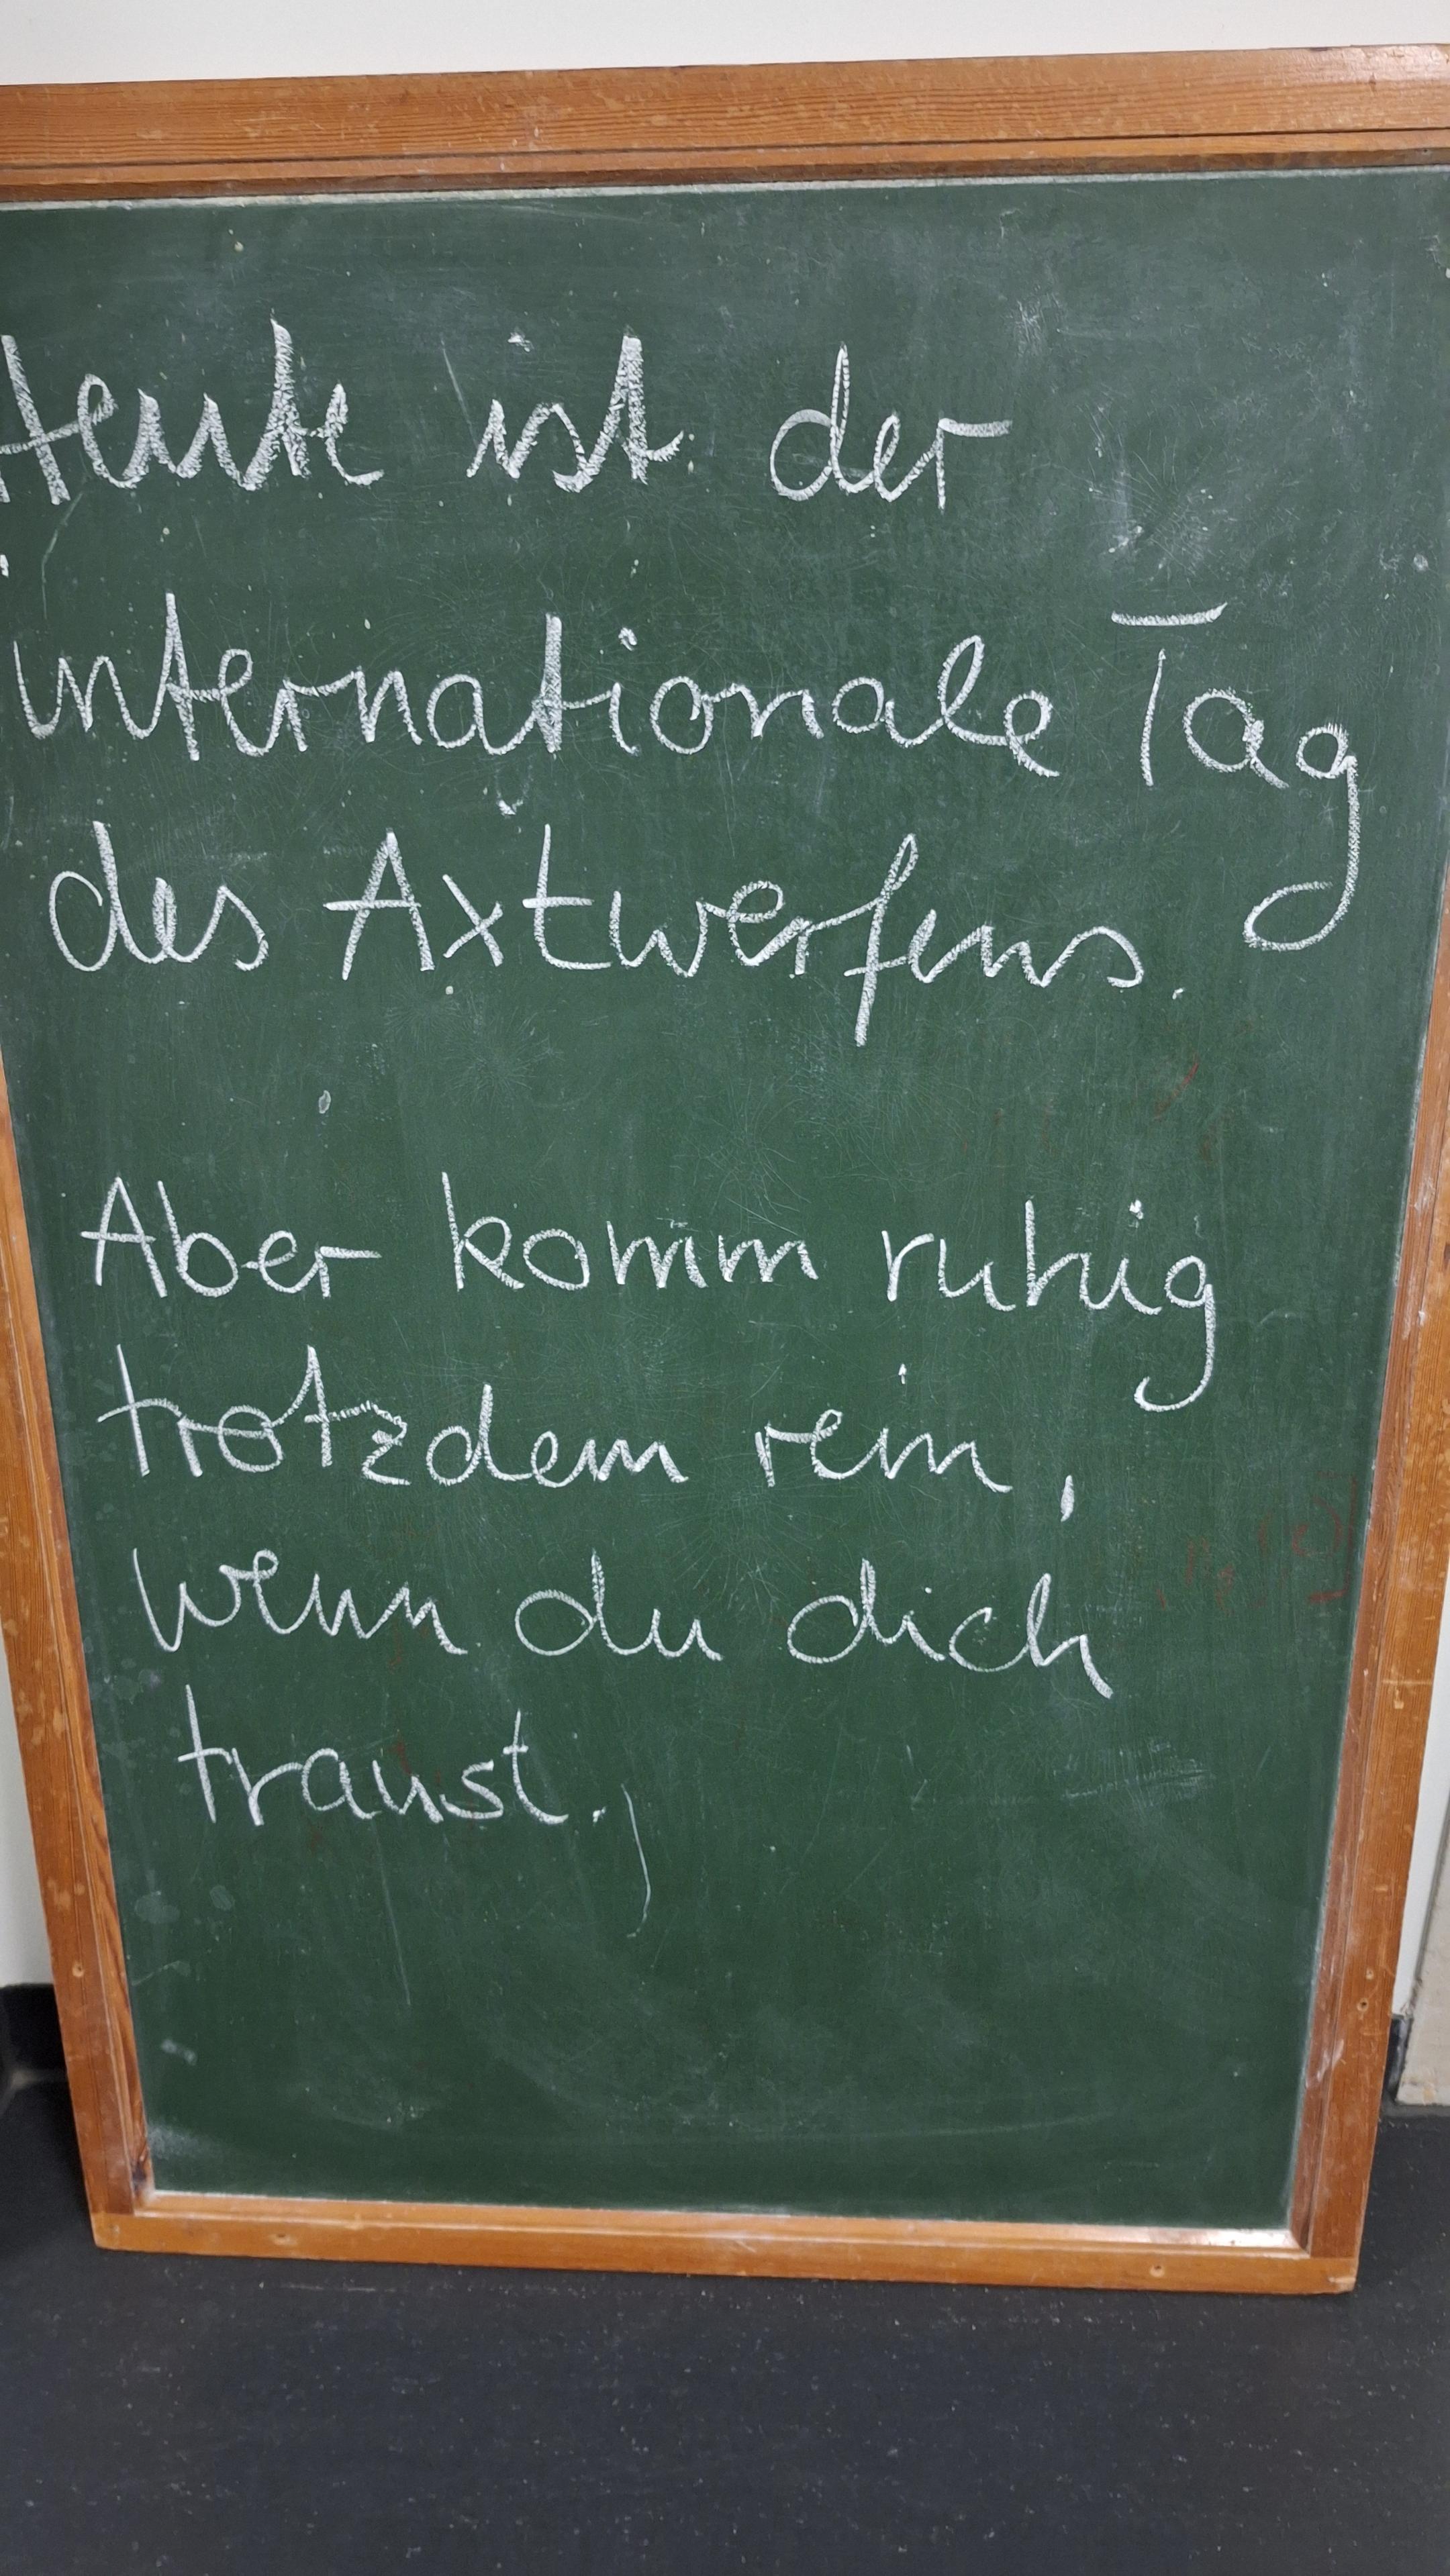 Heute ist der
internationale Tag
des Axtwerfens.
Aber komm ruhig
trotzdem rein,
wenn du dich
traust.